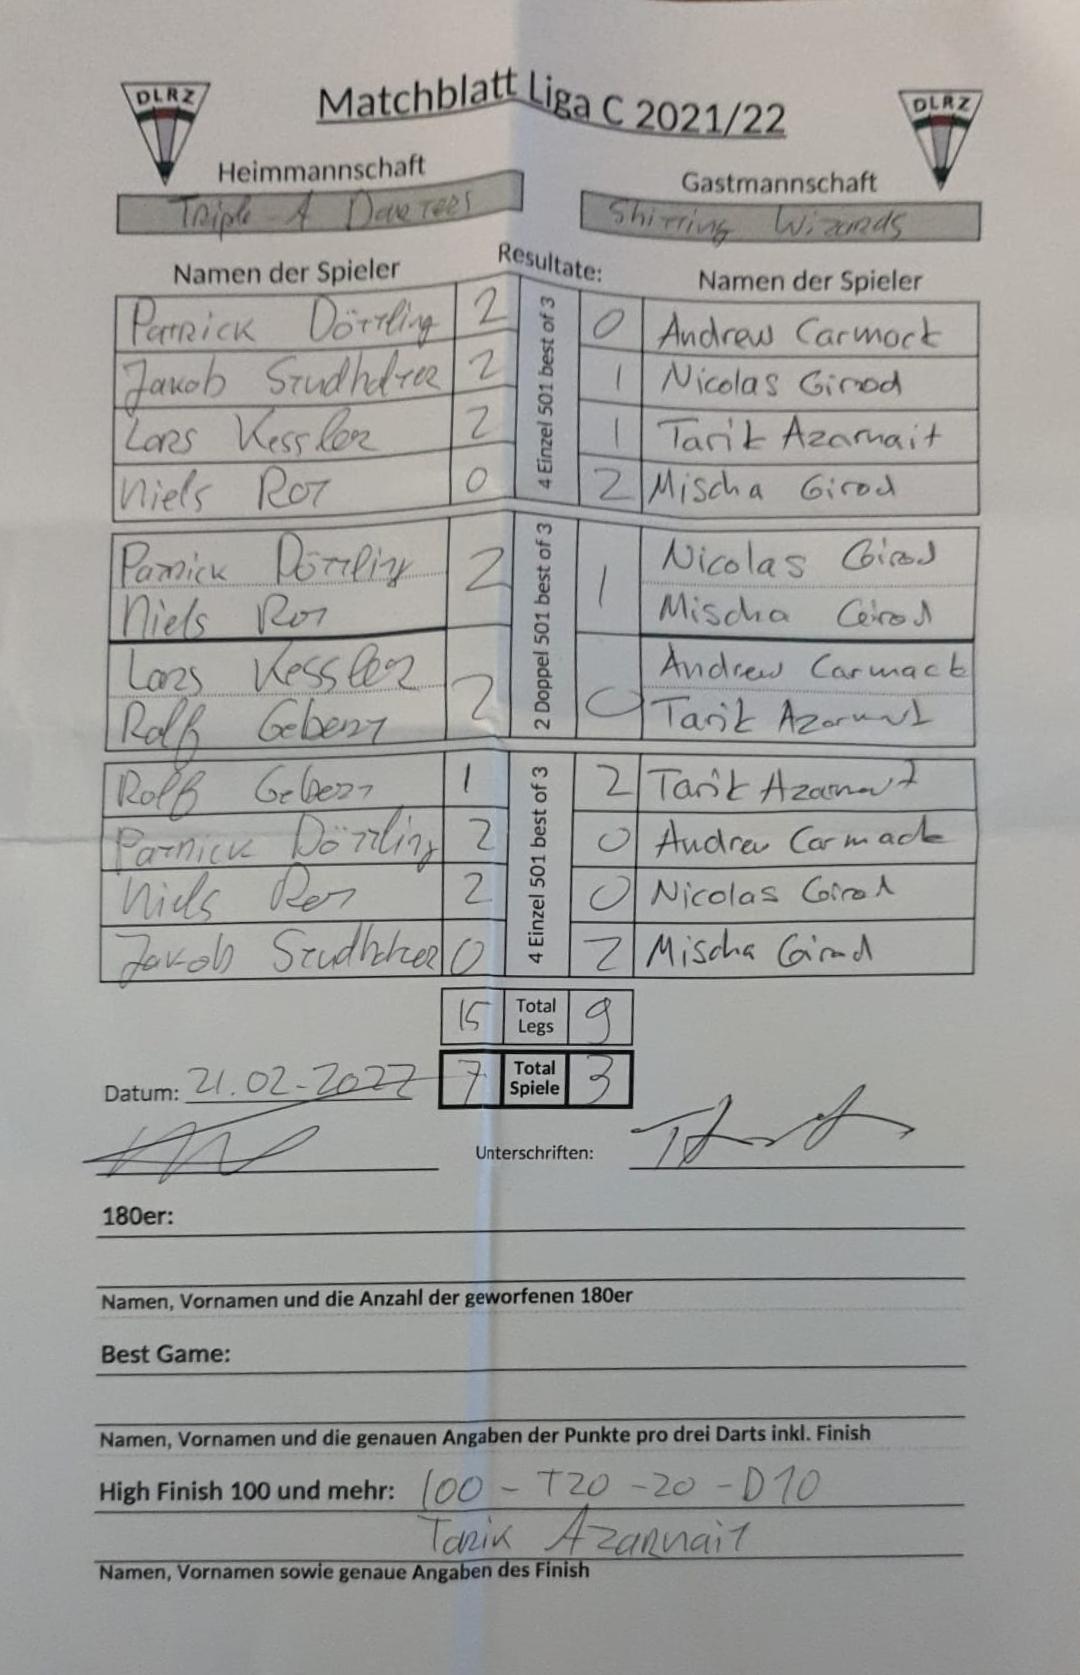 DLRZ
Matchblatt Liga C 2021/22
DLRZ
Heimmannschaft
Gastmannschaft
Triple A Darters
Shitting Wizards
Namen der Spieler
Resultate:
Namen der Spieler
4 Einzel 501 best of 3
Patrick Döttling 2 0 Andrew Carmack
Jakob Studhalter 2 1 Nicolas Girod
Lars Kessler 2 1 Tarik Azarnait
Niels Rot 0 2 Mischa Girod
2 Doppel 501 best of 3
Patrick Döttling 2 1 Nicolas Girod
Niels Rot Mischa Girod
Lars Kessler 2 0 Andrew Carmack
Rolf Gebert Tarik Azarnait
4 Einzel 501 best of 3
Rolf Gebert 1 2 Tarik Azarnait
Patrick Döttling 2 0 Andrew Carmack
Niels Rot 2 0 Nicolas Girod
Jakob Studhalter 0 2 Mischa Girod
15 Total Legs 9
7 Total Spiele 3
Datum: 21.02.2022
Unterschriften:
180er:
Namen, Vornamen und die Anzahl der geworfenen 180er
Best Game:
Namen, Vornamen und die genauen Angaben der Punkte pro drei Darts inkl. Finish
High Finish 100 und mehr: 100 - T20 - 20 - D10
Tarik Azarnait
Namen, Vornamen sowie genaue Angaben des Finish